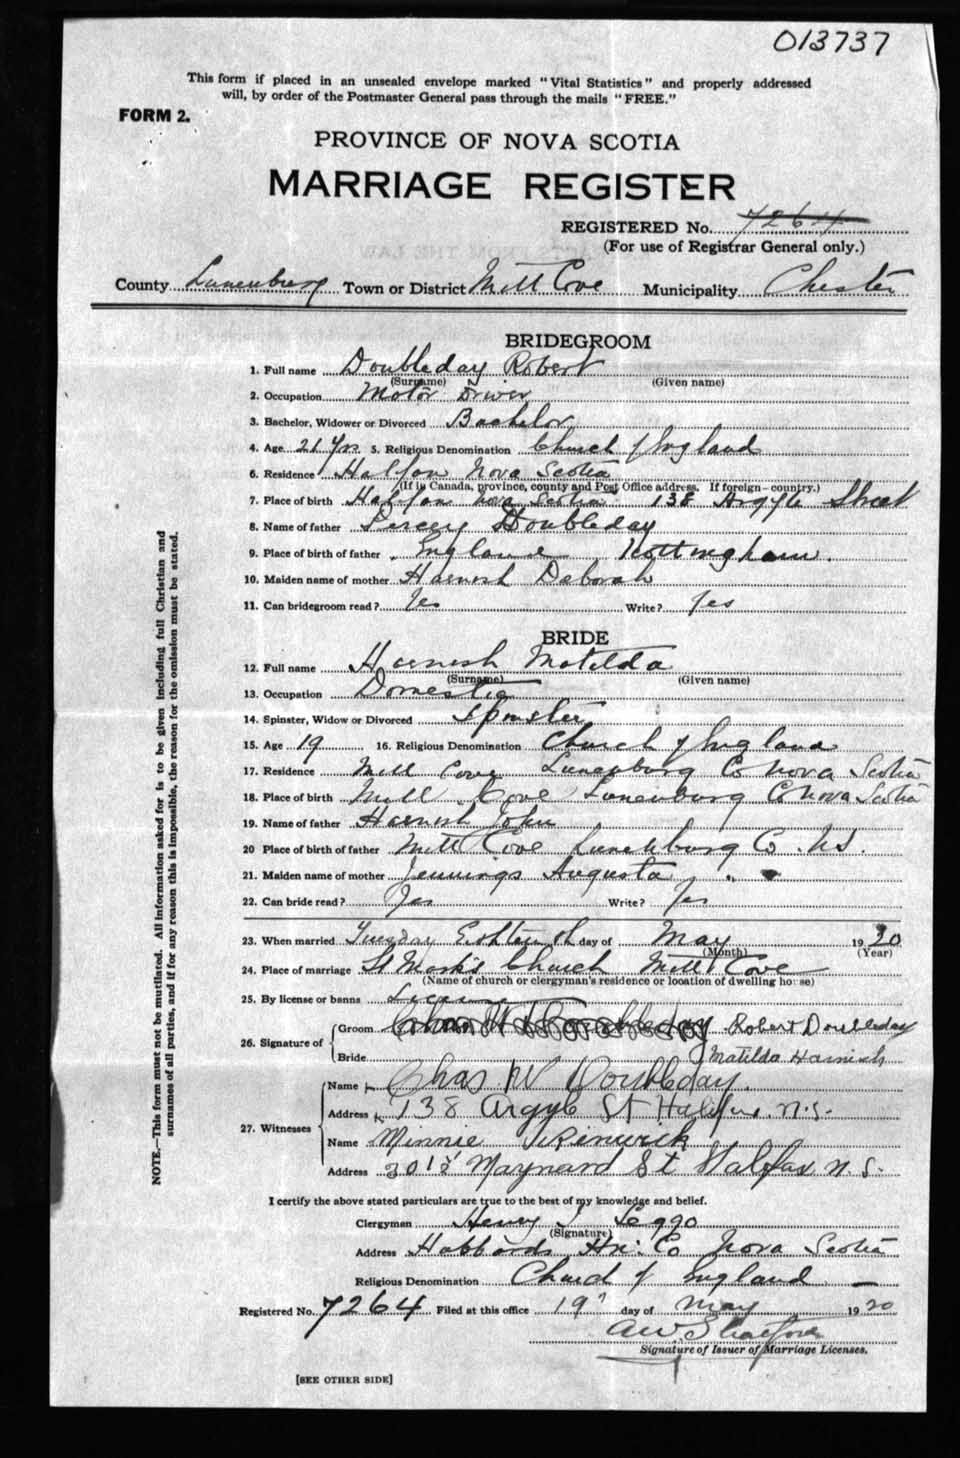 013737
This form if placed in an unsealed envelope marked "Vital Statistics" and properly addressed
will, by order of the Postmaster General pass through the mails "FREE."
FORM 2.
PROVINCE OF NOVA SCOTIA
MARRIAGE REGISTER
REGISTERED No. 7264
(For use of Registrar General only.)
County Lunenburg Town or District Mill Cove Municipality Chester
BRIDEGROOM
1. Full name Doubleday Robert
(Surname) (Given name)
2. Occupation Motor Driver
3. Bachelor, Widower or Divorced Bachelor
4. Age 21 Yrs 5. Religious Denomination Church of England
6. Residence Halifax Nova Scotia
(If in Canada, province, county and Post Office address. If foreign—country.)
7. Place of birth Halifax Nova Scotia 138 Argyle Street
8. Name of father Percey Doubleday
9. Place of birth of father England Nottingham.
10. Maiden name of mother Harnish Deborah
11. Can bridegroom read? Yes Write? Yes
BRIDE
12. Full name Harnish Matilda
(Surname) (Given name)
13. Occupation Domestic
14. Spinster, Widow or Divorced Spinster
15. Age 19 16. Religious Denomination Church of England
17. Residence Mill Cove Lunenburg Co Nova Scotia
18. Place of birth Mill Cove Lunenburg Co Nova Scotia
19. Name of father Harnish John
20 Place of birth of father Mill Cove Lunenburg Co. N.S.
21. Maiden name of mother Jennings Augusta " "
22. Can bride read? Yes Write? Yes
23. When married Tuesday Eighteenth day of May 1920
(Month) (Year)
24. Place of marriage St Mark's Church Mill Cove
(Name of church or clergyman's residence or location of dwelling house)
25. By license or banns License
26. Signature of
Groom Robert Doubleday
Bride Matilda Harnish
27. Witnesses
Name Chas W Doubleday.
Address 138 Argyle St Halifax N.S.
Name Minnie Renwick
Address Maynard St Halifax N.S.
I certify the above stated particulars are true to the best of my knowledge and belief.
Clergyman Henry J Leggo
(Signature)
Address Hubbards Hx. Co Nova Scotia
Religious Denomination Church of England
Registered No. 7264 Filed at this office 19 day of May 1920
Signature of Issuer of Marriage Licenses.
[SEE OTHER SIDE]
NOTE.—This form must not be mutilated. All information asked for is to be given including full Christian and
surnames of all parties, and if for any reason this is impossible, the reason for the omission must be stated.